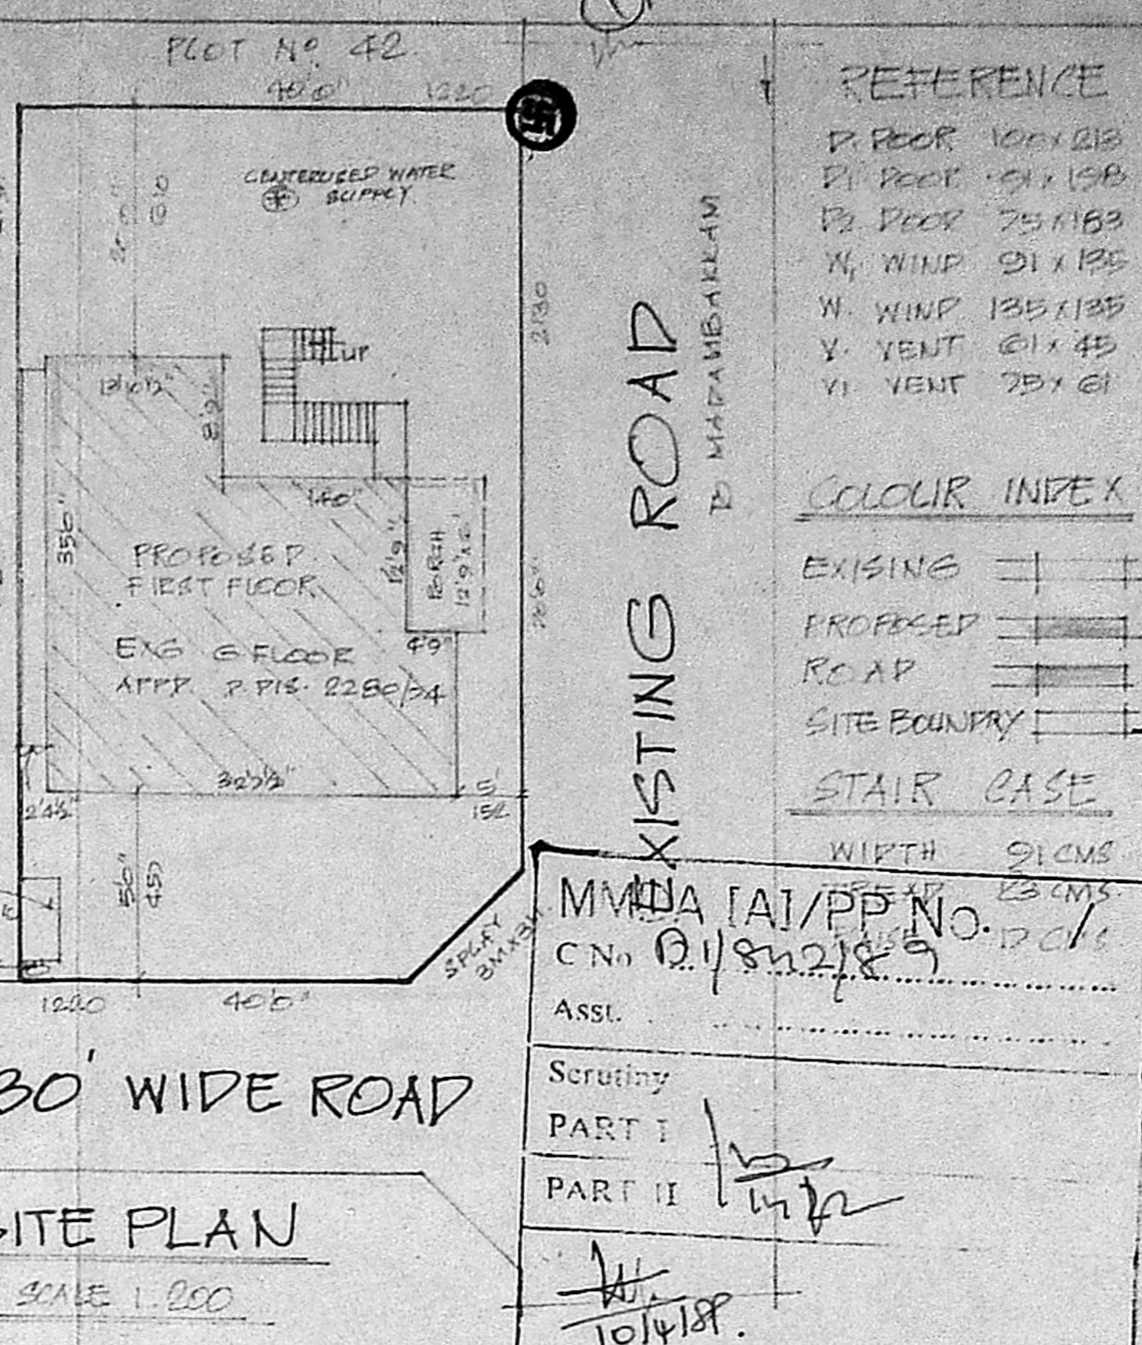 PLOT No. 42
40'0" 1220
CENTERLIZED WATER
SUPPLY
2130
UP
13'10½"
8'9"
14'0"
35'0"
PROPOSED
FIRST FLOOR
EXG G FLOOR
APPD. P.PIS. 2280/74
12'9"
PORCH
4'9"
32'7½"
5'
152
2'4½"
SPLAY
3M X 3M
1220 40'0"
30' WIDE ROAD
SITE PLAN
SCALE 1:200
EXISTING ROAD
TO MADAMBAKKAM
REFERENCE
D. DOOR 100 x 213
D1 DOOR 91 x 198
D2 DOOR 75 x 183
W1 WIND 91 x 135
W. WIND 135 x 135
V. VENT 61 x 45
V1. VENT 75 x 61
COLOUR INDEX
EXISING
PROPOSED
ROAD
SITE BOUNDRY
STAIR CASE
WIDTH 91 CMS
TREAD 23 CMS.
RISE 17 CMS
MMDA [A]/PP No. /
C No B1/842/89
Asst.
Scrutiny
PART I
PART II
10/4/89.